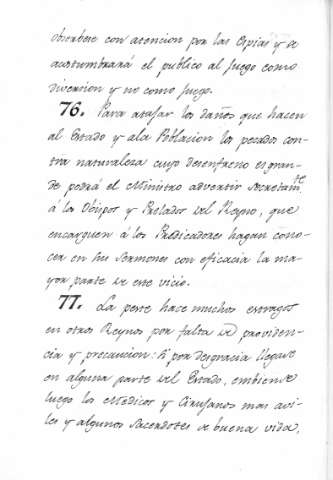 obserbese con atencion por las Espias y se
acostumbrará el publico al Juego como
divercion y no como Juego.
76. Para atajar los daños que hacen
al Estado y ala Poblacion los pecados con-
tra naturaleza cuyo desenfreno es gran-
de podrá el Ministro advertir secretam.te
á los Obispos y Prelados del Reyno, que
encarguen á los Predicadores hagan cono-
cer en sus Sermones con eficacia la ma-
yor parte de este vicio.
77. La peste hace muchos estragos
en otros Reynos por falta de providen-
cia y precaucion: si por desgracia llegase
en alguna parte del Estado, embiense
luego los Medicos y Cirujanos mas avi-
les y algunos Sacerdotes de buena vida,